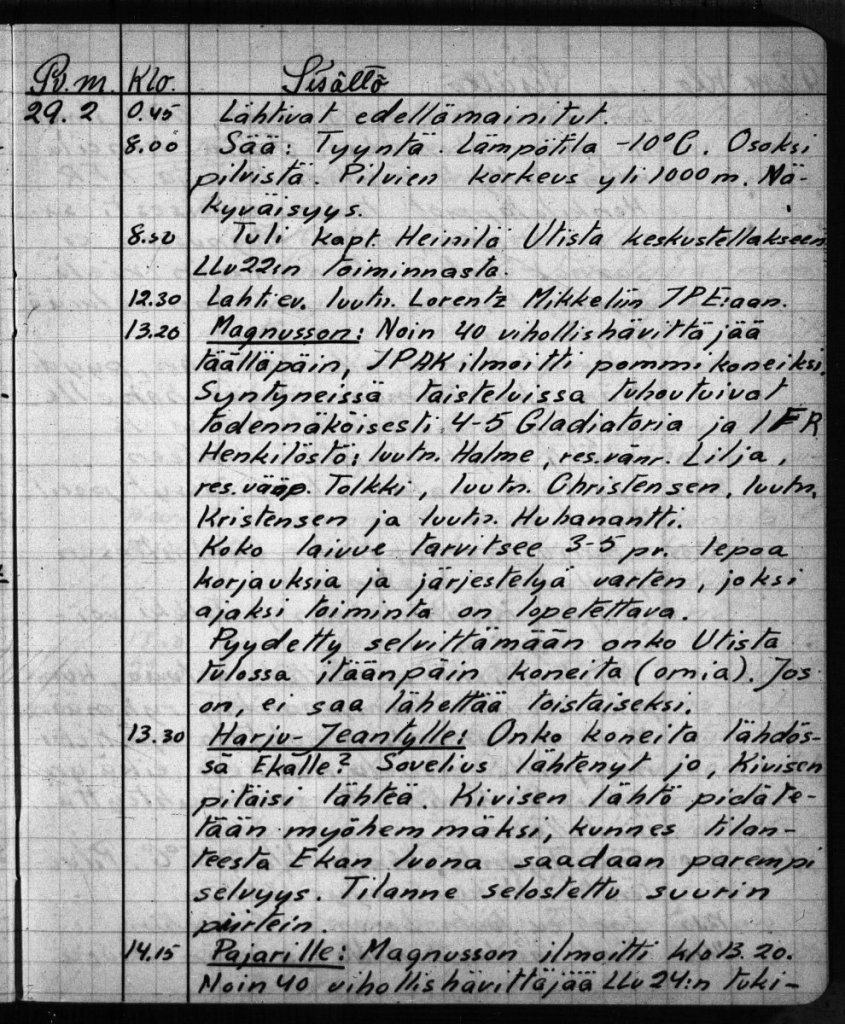 Pv.m. Klo. Sisältö
29.2 0.45 Lähtivat edellämainitut.
8.00 Sää: Tyyntä. Lämpötila -10°C. Osaksi
pilvistä. Pilvien korkeus yli 1000 m. Nä-
kyväisyys.
8.50 Tuli kapt. Heinilä Utista keskustellakseen
LLv22:n toiminnasta.
12.30 Lahti ev. luutn. Lorentz Mikkeliin JPE:aan.
13.20 Magnusson: Noin 40 vihollishävittäjää
täälläpäin, JPAK ilmoitti pommikoneiksi.
Syntyneissä taisteluissa tuhoutuivat
todennäköisesti 4-5 Gladiatoria ja 1 FR
Henkilöstö: luutn. Halme, res.vänr. Lilja,
res.vääp. Tolkki, luutn. Christensen, luutn.
Kristensen ja luutn. Huhanantti.
Koko laivue tarvitsee 3-5 pr. lepoa
korjauksia ja järjestelyä varten, joksi
ajaksi toiminta on lopetettava.
Pyydetty selvittämään onko Utista
tulossa itäänpäin koneita (omia). Jos
on, ei saa lähettää toistaiseksi.
13.30 Harju-Jeantylle: Onko koneita lähdös-
sä Ekalle? Sovelius lähtenyt jo, Kivisen
pitäisi lähteä. Kivisen lähtö pidäte-
tään myöhemmäksi, kunnes tilan-
teesta Ekan luona saadaan parempi
selvyys. Tilanne selostettu suurin
piirtein.
14.15 Pajarille: Magnusson ilmoitti klo 13.20.
Noin 40 vihollishävittäjää LLv 24:n tuki-